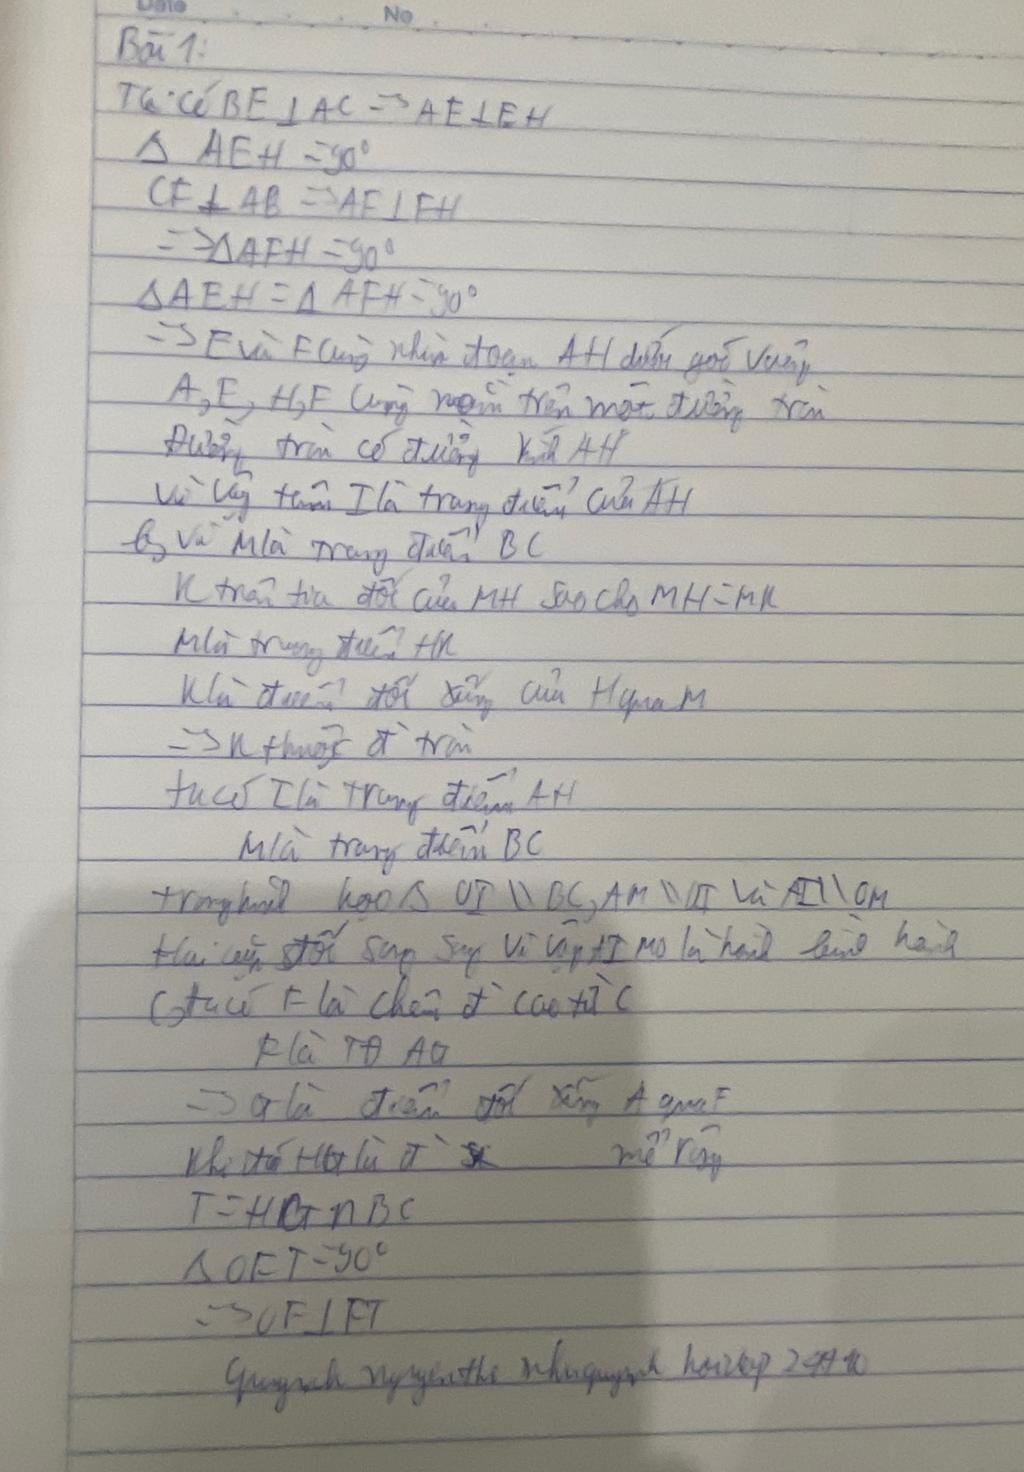 Date No
Bài 1:
Ta có BE ⊥ AC => AE ⊥ EH
Δ AEH = 90°
CF ⊥ AB => AF ⊥ FH
=> Δ AFH = 90°
Δ AEH = Δ AFH = 90°
=> E và F cùng nhìn đoạn AH dưới góc vuông
A, E, H, F cùng nằm trên một đường tròn
Đường tròn có đường kính AH
Vì vậy tâm I là trung điểm của AH
b, Vì M là trung điểm BC
K trên tia đối của MH sao cho MH = MK
M là trung điểm HK
K là điểm đối xứng của H qua M
=> K thuộc đ tròn
ta có I là trung điểm AH
M là trung điểm BC
trong hình học Δ OI \\ BC, AM \\ và AI \\ OM
Hai cặp đối song song vì vậy AI MO là hình bình hành
C, ta có F là chân đ cao từ C
F là TĐ AG
=> G là điểm đối xứng A qua F
Khi đó HG là đ mở rộng
T = HG ∩ BC
Δ OFT = 90°
=> OF ⊥ FT